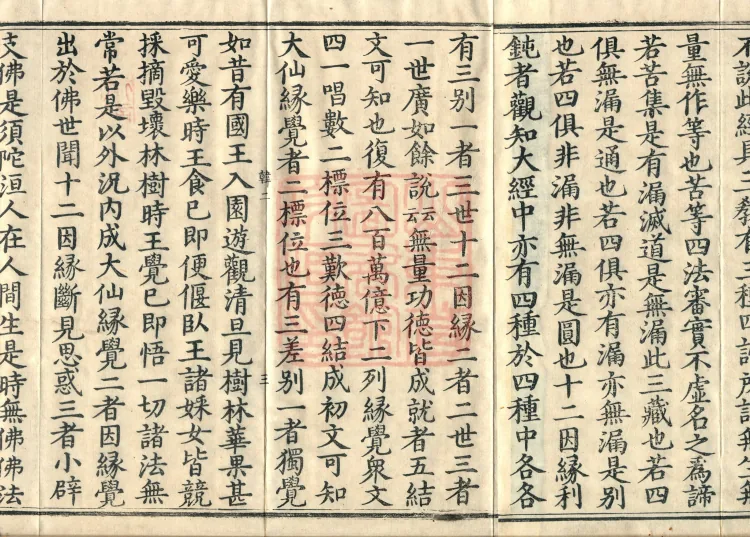 不說此經具二教有
量無作等也苦等四法審實不虛名之為諦
若苦集是有漏滅道是無漏此三藏也若四
俱無漏是通也若四俱亦有漏亦無漏是別
也若四俱非漏非無漏是圓也十二因緣利
鈍者觀知大經中亦有四種於四種中各各
有三別一者三世十二因緣二者二世三者
一世廣如餘說云云無量功德皆成就者五結
文可知也復有八百萬億下二列緣覺眾文
四一唱數二標位三歎德四結成初文可知
大仙緣覺者二標位也有三差別一者獨覺
韓二
三
如昔有國王入園遊觀清旦見樹林華果甚
可愛樂時王食已即便偃臥王諸婇女皆競
採摘毀壞林樹時王覺已即悟一切諸法無
常若是以外況內成大仙緣覺二者因緣覺
出於佛世聞十二因緣斷見思惑三者小辟
支佛是須陀洹人在人間生是時無佛佛法